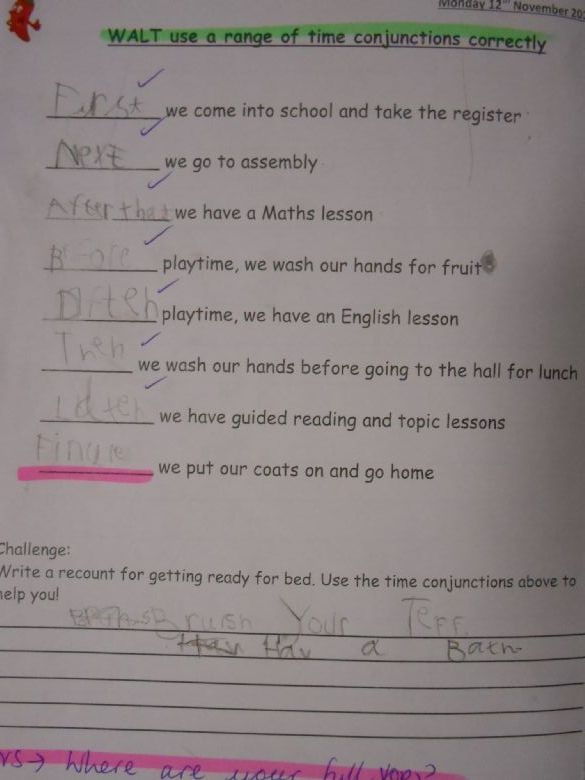 Monday 12th November 20
WALT use a range of time conjunctions correctly
First we come into school and take the register
Next we go to assembly
After that we have a Maths lesson
Before playtime, we wash our hands for fruit
After playtime, we have an English lesson
Then we wash our hands before going to the hall for lunch
Later we have guided reading and topic lessons
we put our coats on and go home
Challenge:
Write a recount for getting ready for bed. Use the time conjunctions above to
help you!
Brush Your Teff.
Hav a Bath
Where are your full